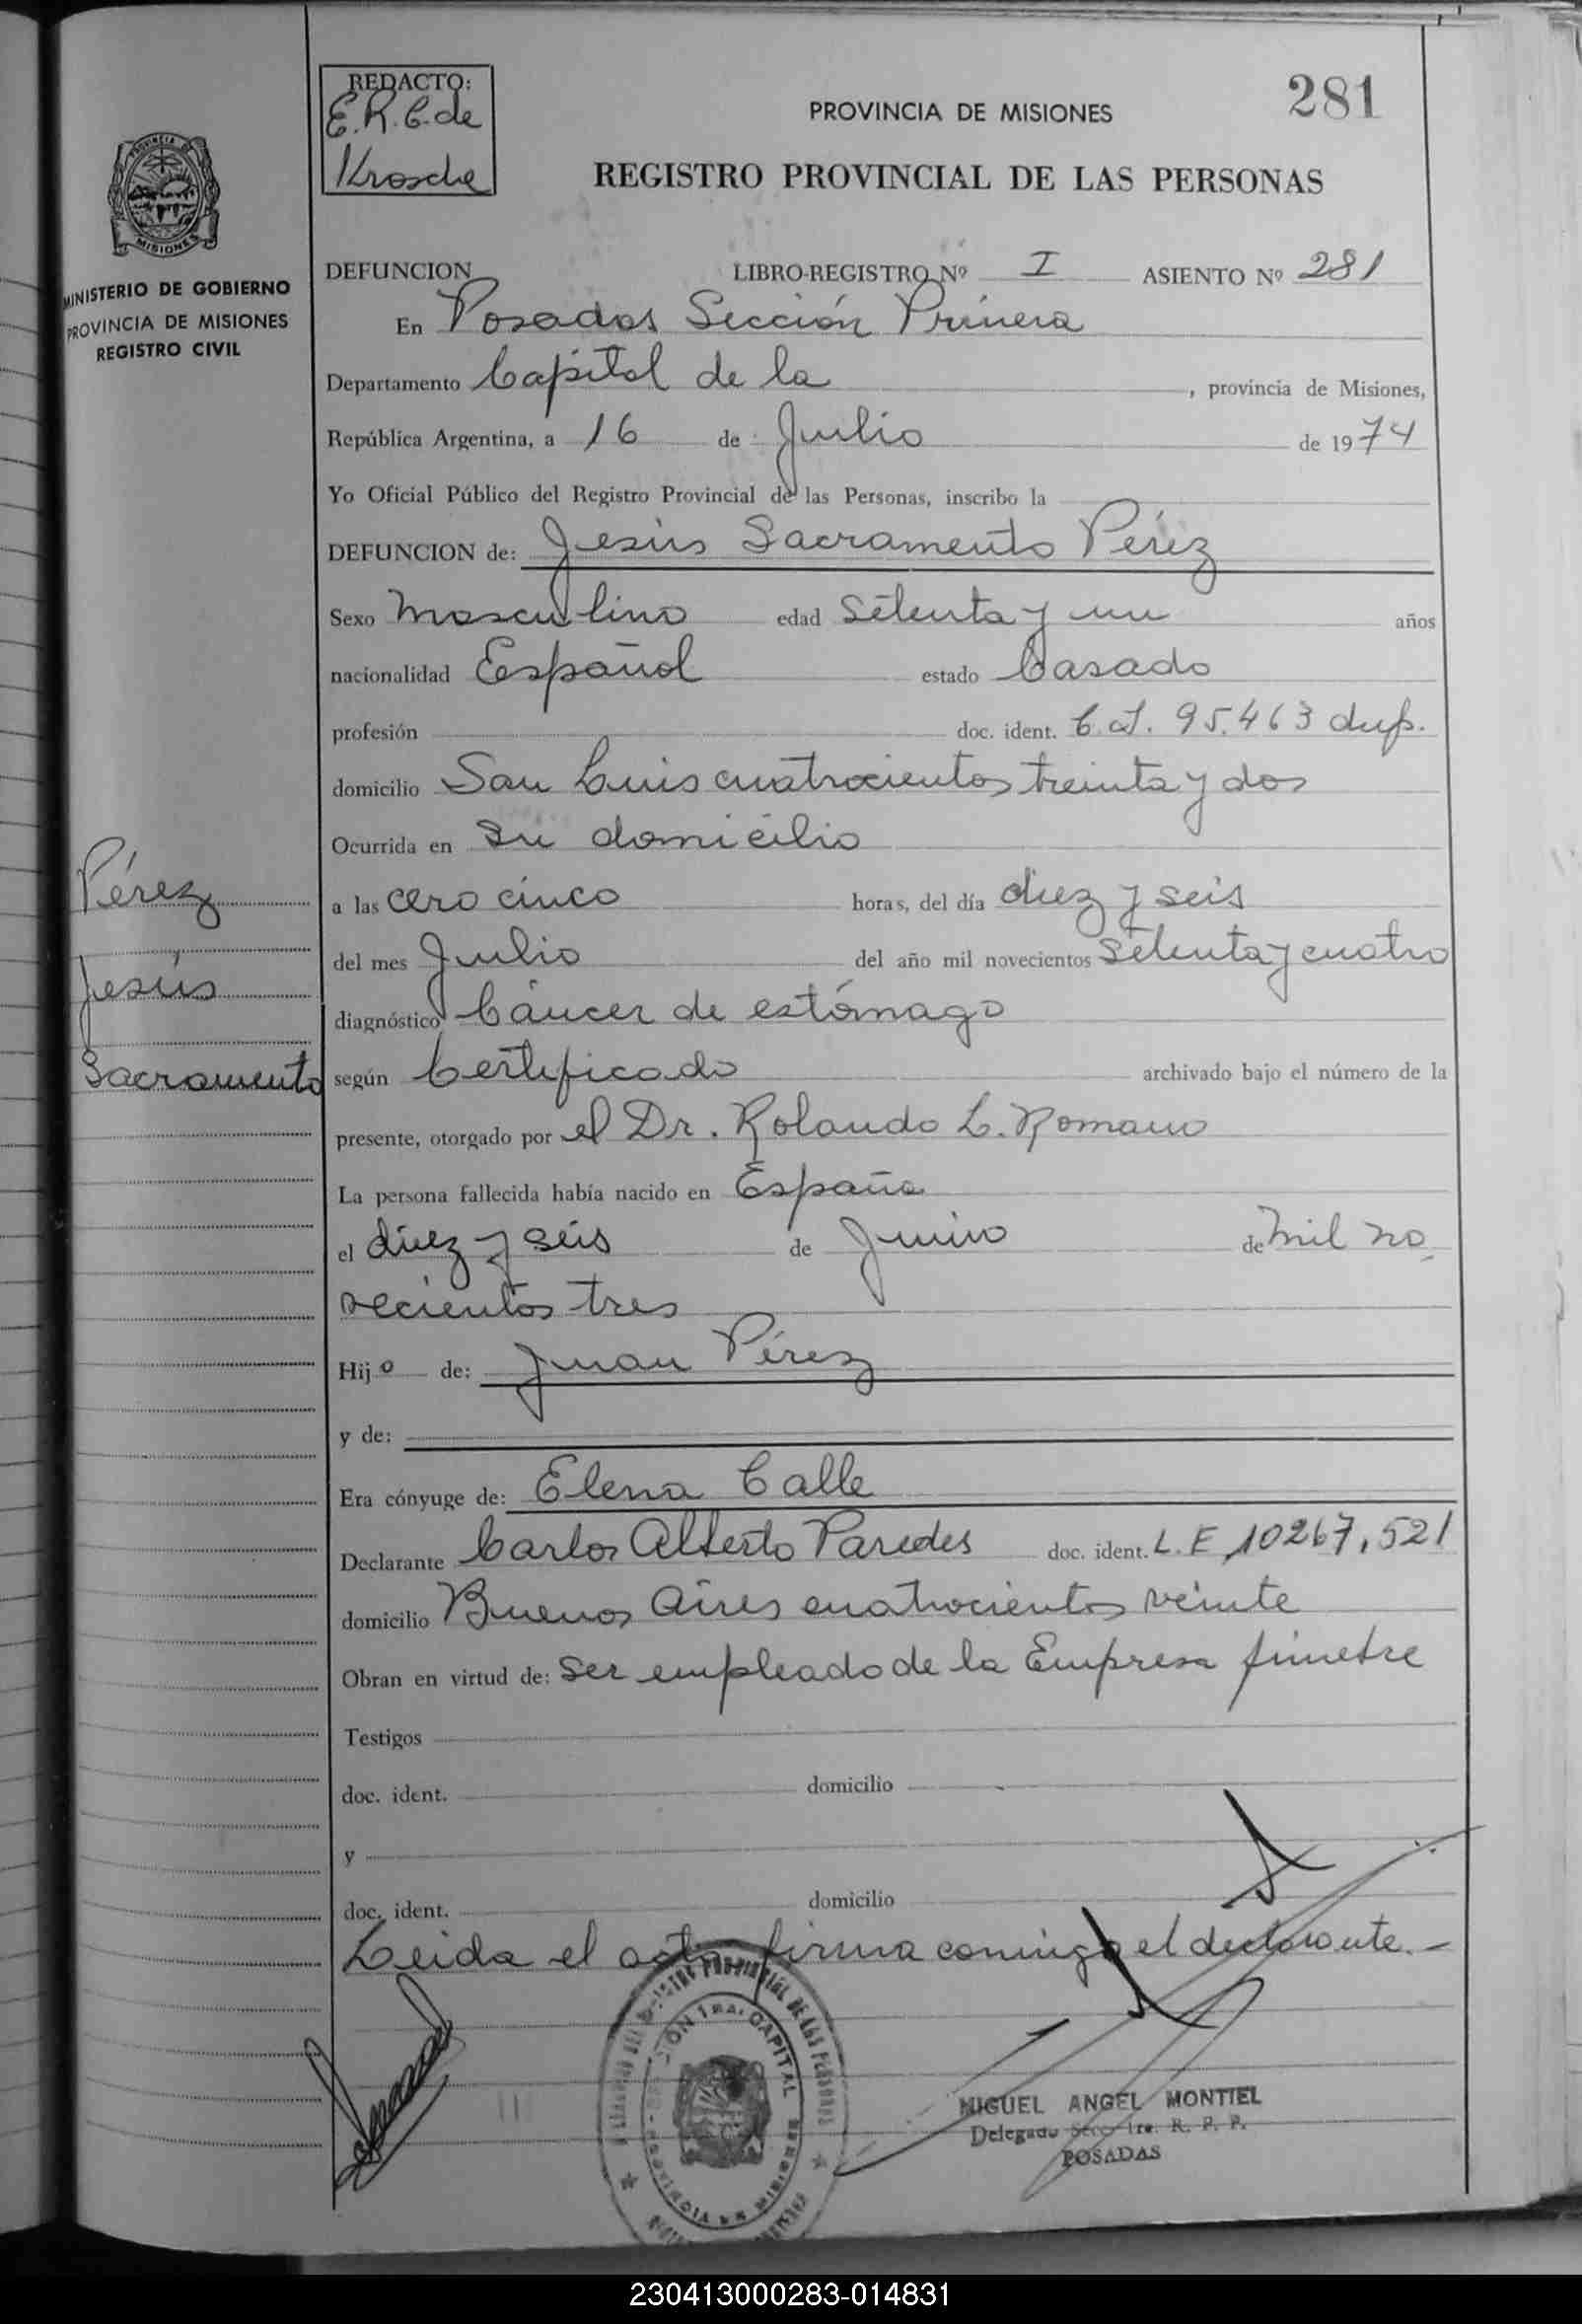 REDACTO:
E.R.C. de
Krosche
PROVINCIA DE MISIONES
281
REGISTRO PROVINCIAL DE LAS PERSONAS
PROVINCIA DE
MISIONES
MINISTERIO DE GOBIERNO
PROVINCIA DE MISIONES
REGISTRO CIVIL
DEFUNCION LIBRO-REGISTRO Nº I ASIENTO Nº 281
En Posadas Sección Primera
Departamento Capital de la , provincia de Misiones,
República Argentina, a 16 de Julio de 1974
Yo Oficial Público del Registro Provincial de las Personas, inscribo la
DEFUNCION de: Jesús Sacramento Pérez
Sexo Masculino edad Setenta y un años
nacionalidad Español estado Casado
profesión doc. ident. C.I. 95.463 dup.
domicilio San Luis cuatrocientos treinta y dos
Ocurrida en su domicilio
Pérez
Jesús
Sacramento
a las cero cinco horas, del día diez y seis
del mes Julio del año mil novecientos Setenta y cuatro
diagnóstico Cáncer de estómago
según Certificado archivado bajo el número de la
presente, otorgado por el Dr. Rolando L. Romano
La persona fallecida había nacido en España
el diez y seis de Junio de mil no
vecientos tres
Hijo de: Juan Pérez
y de:
Era cónyuge de: Elena Calle
Declarante Carlos Alberto Paredes doc. ident. L.E 10267,521
domicilio Buenos Aires cuatrocientos veinte
Obran en virtud de: ser empleado de la Empresa fúnebre
Testigos
doc. ident. domicilio
y
doc. ident. domicilio
Leida el acta firma conmigo el declarante.-
MIGUEL ANGEL MONTIEL
Delegado Secc. 1ra. R. P. P.
POSADAS
230413000283-014831